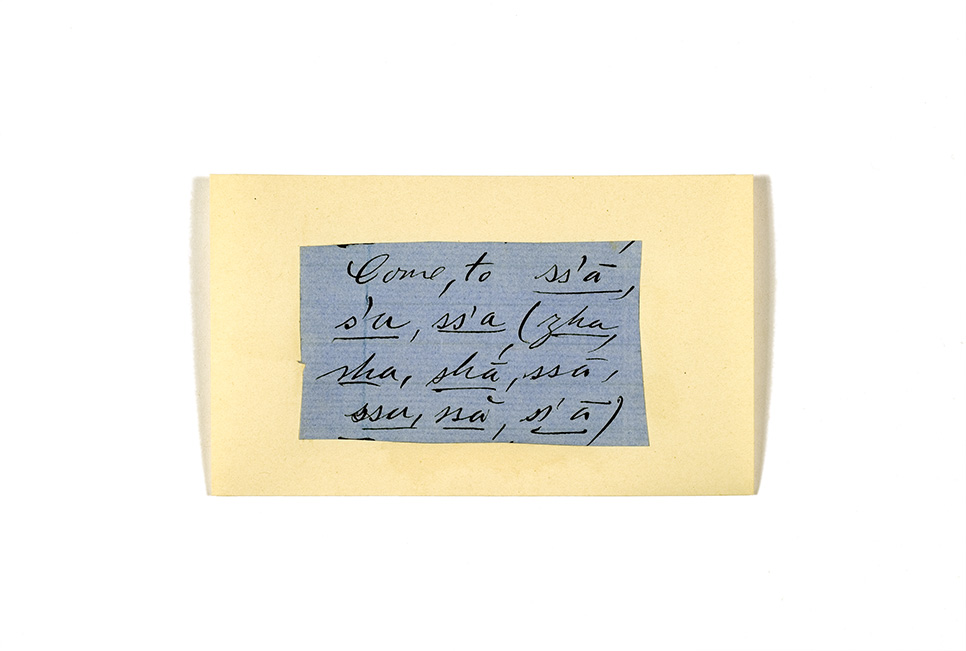 Come, to ss'ā,
s'u, ss'a, (zha,
sha, shá, ssā,
ssu, ssă, ss'ā)